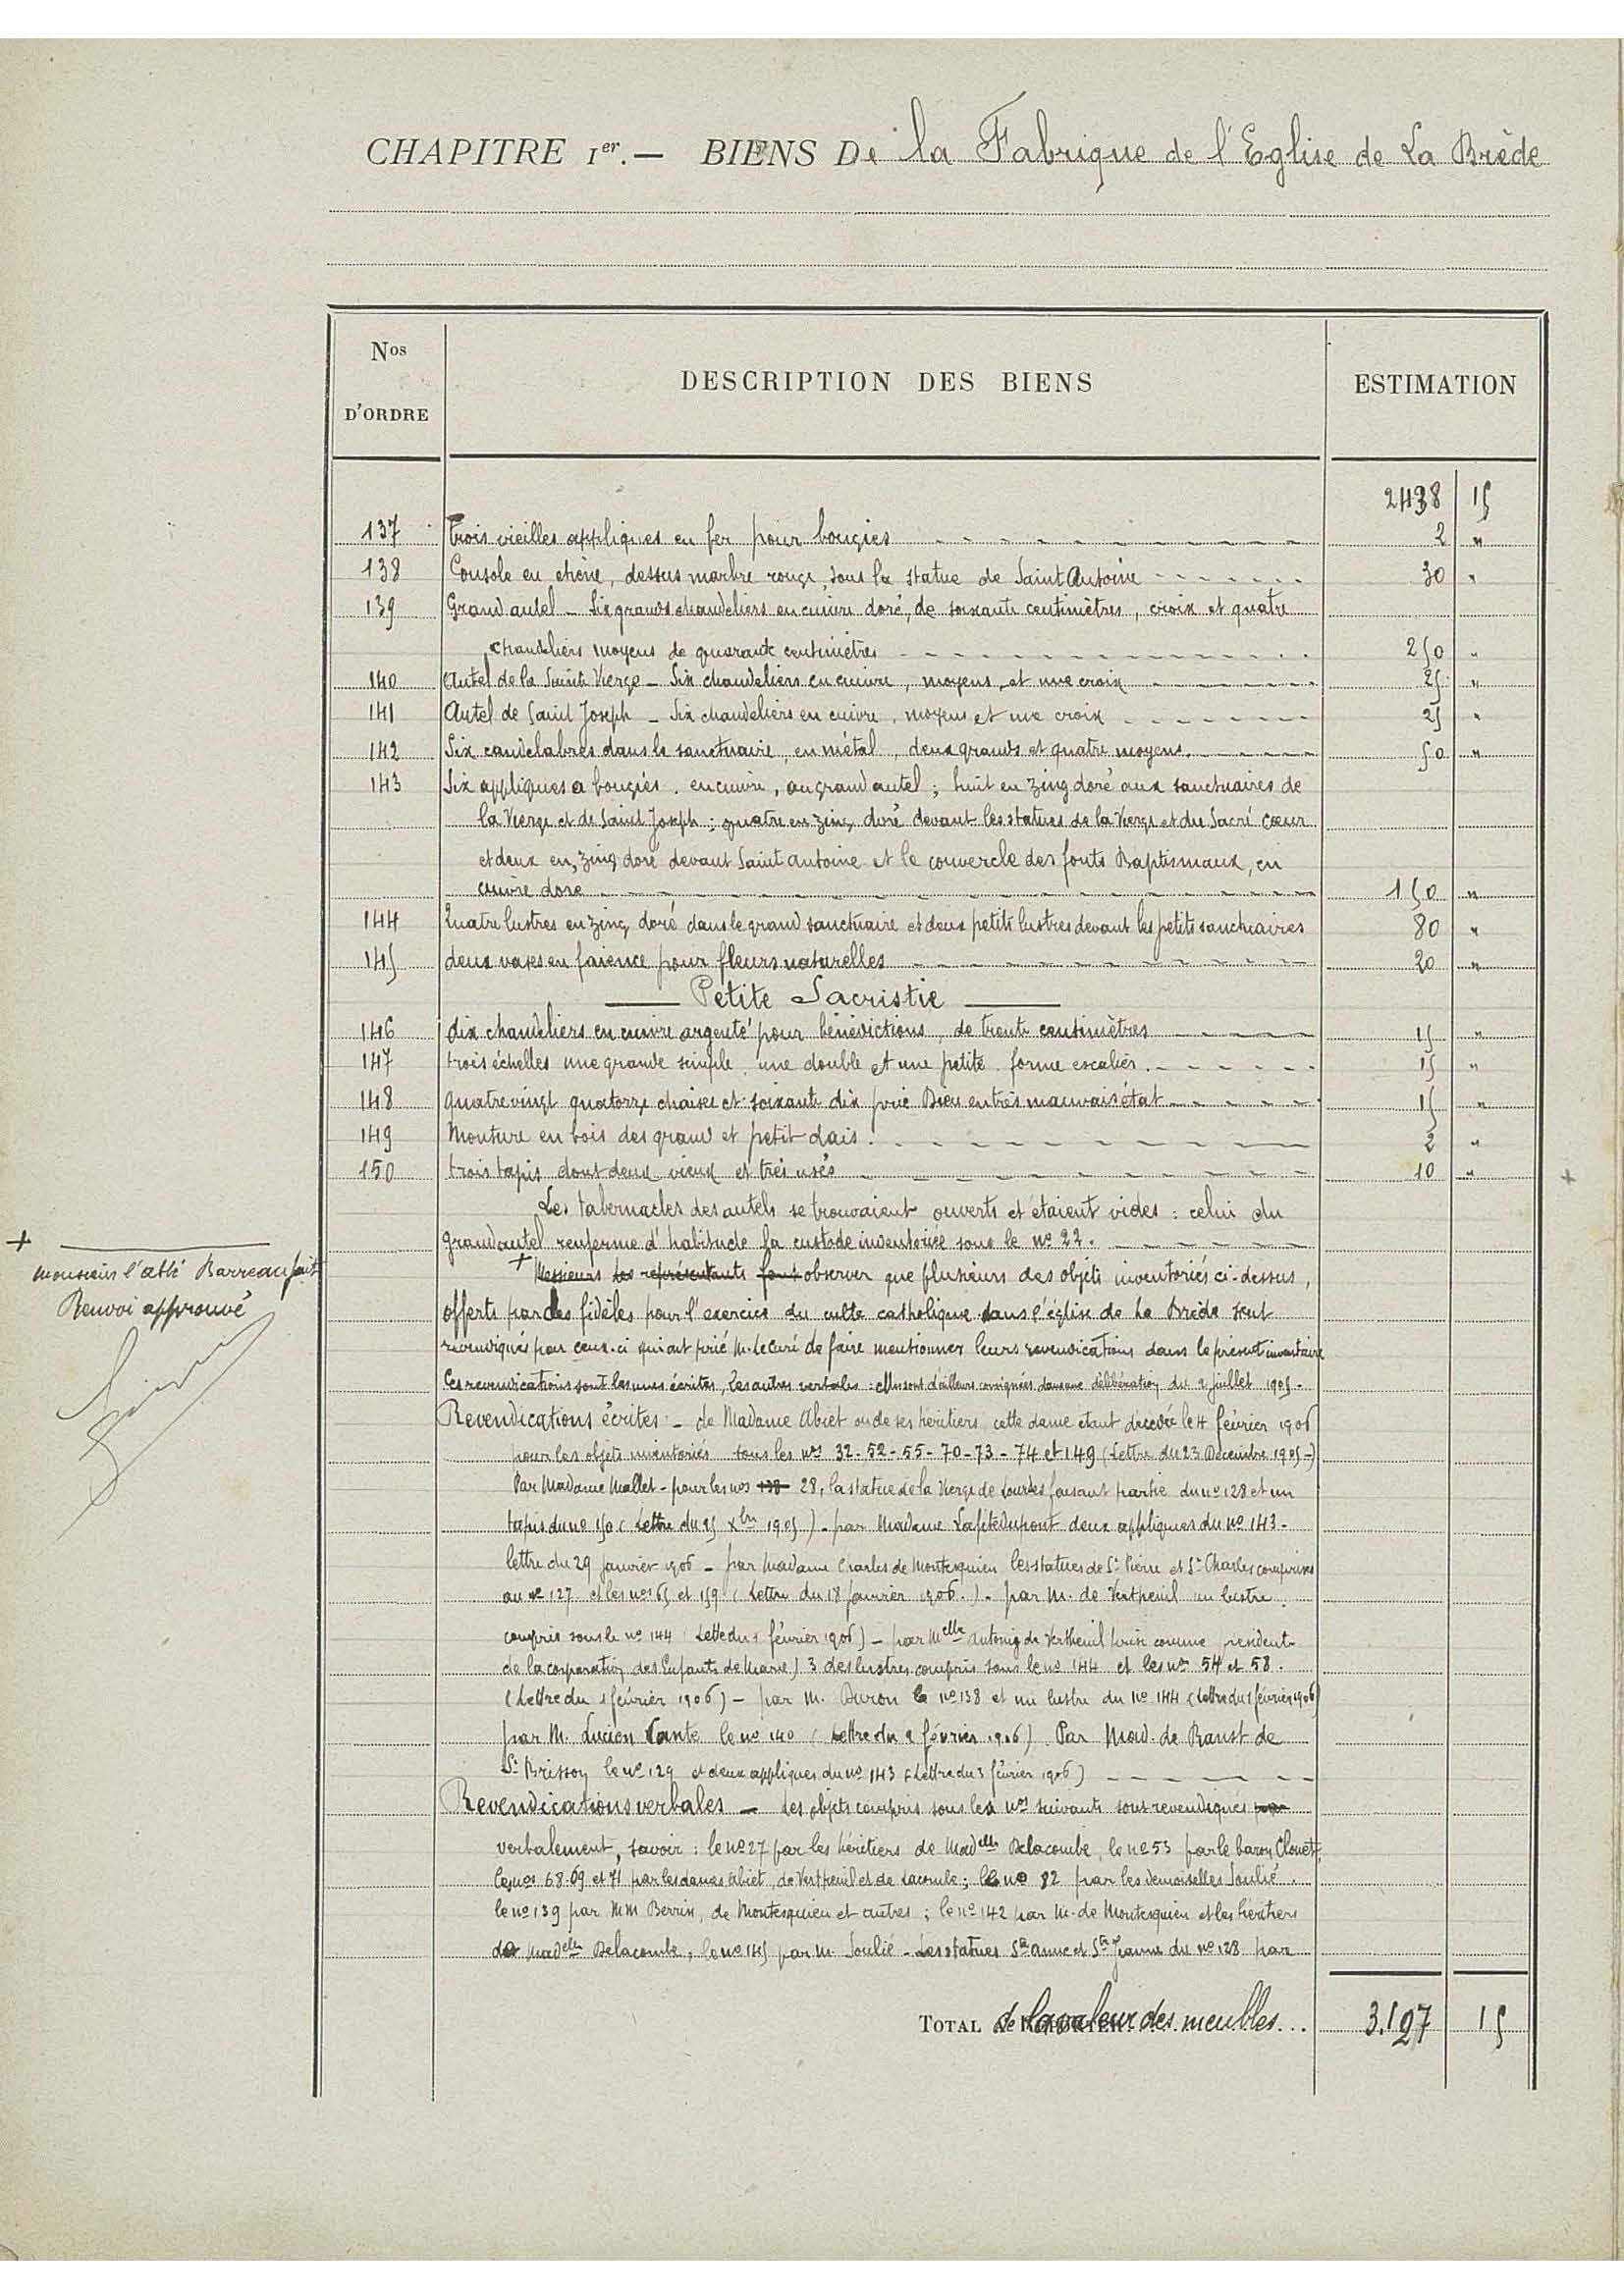 CHAPITRE Ier. — BIENS De la Fabrique de l'Eglise de La Brède
Nos D'ORDRE
DESCRIPTION DES BIENS
ESTIMATION
2438 15
137 trois vieilles appliques en fer pour bougies 2 "
138 Console en chêne, dessus marbre rouge, sous la statue de Saint Antoine 30 "
139 Grand autel _ Six grands chandeliers en cuivre doré, de soixante centimètres, croix et quatre
chandeliers moyens de quarante centimètres 250 "
140 Autel de la Sainte Vierge _ Six chandeliers en cuivre, moyens, et une croix 25 "
141 Autel de Saint Joseph _ Six chandeliers en cuivre, moyens et une croix 25 "
142 Six candelabres dans le sanctuaire, en métal, deux grands et quatre moyens. 50 "
143 Six appliques a bougies. en cuivre, au grand autel ; huit en zing doré aux sanctuaires de
la Vierge et de Saint Joseph ; quatre en zing doré devant les statues de la Vierge et du Sacré Cœur
et deux en zing doré devant Saint Antoine et le couvercle des fonts Baptismaux, en
cuivre doré 150 "
144 Quatre lustres en zing doré dans le grand sanctuaire et deux petits lustres devant les petits sanctuaires 80 "
145 deux vases en faience pour fleurs naturelles 20 "
— Petite Sacristie —
146 dix chandeliers en cuivre argenté pour bénédictions, de trente centimètres 15 "
147 trois échelles une grande simple, une double et une petite forme escalier. 15 "
148 quatre vingt quatorze chaises et soixante dix prie Dieu en très mauvais état 15 "
149 Monture en bois des grand et petit dais. 2 "
150 trois tapis dont deux vieux et très usés 10 "
Les tabernacles des autels se trouvaient ouverts et étaient vides : celui du
grand autel renferme d'habitude la custode inventoriée sous le no 22.
+ Messieurs les représentants font observer que plusieurs des objets inventoriés ci-dessus,
offerts par des fidèles pour l'exercice du culte catholique dans l'église de La Brède sont
revendiqués par ceux-ci qui ont prié M. le Curé de faire mentionner leurs revendications dans le présent inventaire
Ces revendications sont les unes écrites, les autres verbales : elles sont d'ailleurs consignées dans une délibération du 2 juillet 1905.
Revendications écrites _ de Madame Abiet ou de ses héritiers cette dame étant décédée le 4 février 1906
pour les objets inventoriés sous les nos 32-52-55-70-73-74 et 149 (Lettre du 23 Décembre 1905-)
Par Madame Mallet - pour les nos 138 28, la statue de la Vierge de Lourdes faisant partie du no 128 et un
tapis du no 150 (Lettre du 25 Xbre 1905). par Madame Lafite Dupont deux appliques du no 143-
lettre du 29 janvier 1906 - par Madame Charles de Montesquieu les statues de St Pierre et St Charles comprises
au no 127 et les nos 65 et 159 (Lettre du 18 janvier 1906.). par M. de Vertheuil un lustre
compris sous le no 144 Lettre du 1 février 1906) - par Melle Antonig de Vertheuil prise comme president
de la corporation des Enfants de Marie) 3 des lustres compris sous le no 144 et les nos 54 et 58.
(Lettre du 1 février 1906) - par M. Duron le no 138 et un lustre du no 144 (Lettre du 1 février 1906)
par M. Lucien Vante le no 140 (Lettre du 2 février 1906) Par Mad. de Ranst de
St Brisson le no 129 et deux appliques du no 143 (Lettre du 3 février 1906)
Revendications verbales _ Les objets compris sous les nos suivants sont revendiqués par
verbalement, savoir : le no 27 par les héritiers de Madelle Delacombe, le no 53 par le baron Clouet,
les nos 68.69 et 71 par les dames Abiet, de Vertheuil et de Lacombe ; le no 82 par les demoiselles Soulié.
le no 139 par MM Berrin, de Montesquieu et autres ; le no 142 par M. de Montesquieu et les héritiers
de Madelle Delacombe, le no 145 par M. Soulié - Les statues Ste Anne et Ste Jeanne du no 128 par
TOTAL de la valeur des meubles... 3.197 15
+
Monsieur l'abbé Barreau fait
Renvoi approuvé
+